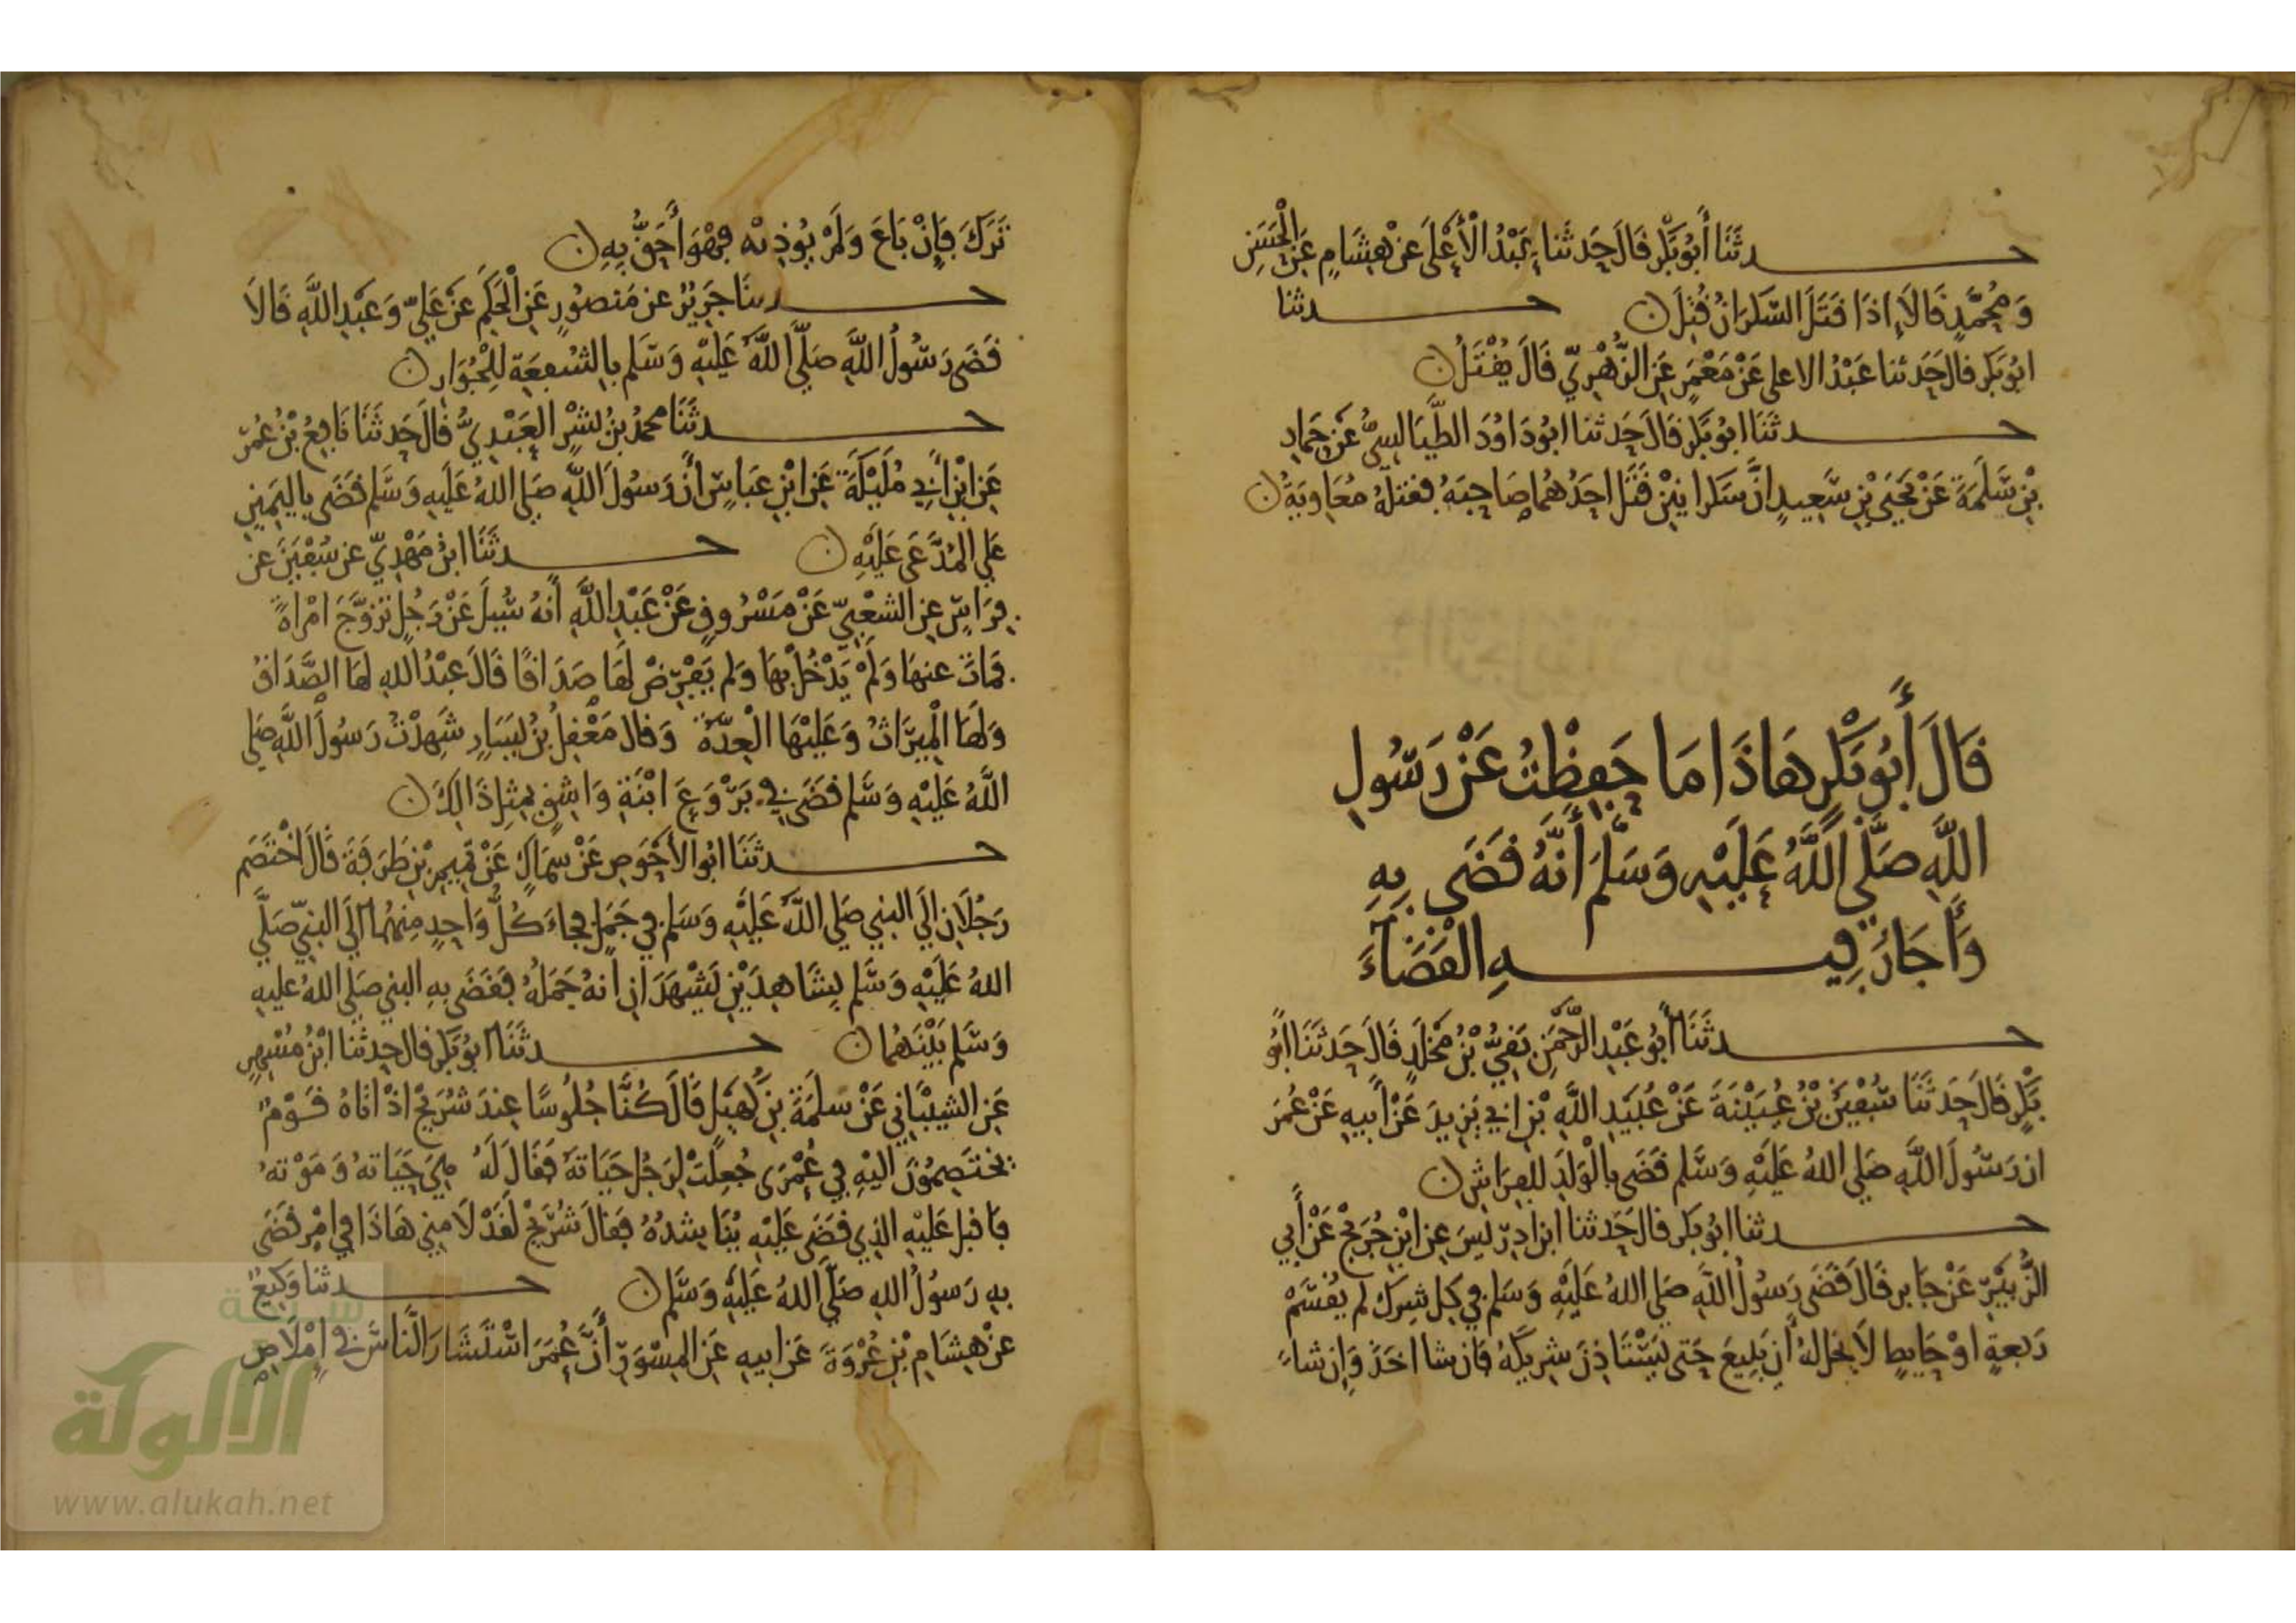 حدثَنَا أَبُو بَكْرٍ قَالَ حَدثَنا عَبْدُ الْأَعْلَى عَنْ هِشَامٍ عَنِ الْحَسَنِ
وَمُحَمَّدٍ قَالَا إِذَا قَتَلَ السَّكرَانُ قُتِلَ ن حدثنا
ابُو بَكر قال حَدثنا عَبْدُ الاعلى عَنْ مَعْمَرٍ عَنِ الزُّهْرِيّ قَالَ يُقْتَلُ ن
حدثَنَا ابُو بَكْرٍ قَالَ حَدَثنا ابُو دَاوُدَ الطَّيَالِسِيُّ عَنْ حَمَادِ
بْنِ سَّلَمَةَ عَنْ يَحْيَى بْنِ سَّعِيدٍ انَّ سَكرانَيْنِ قَتَلَ احَدُهُمَا صَاحِبَهُ فقتلهُ مُعَاوِيَةُ ن
قَالَ أَبُو بَكْرٍ هَاذَا مَا حَفِظْتُ عَنْ رَسُولِ
اللَّهِ صَلَّى اللَّهُ عَلَيْهِ وَسَلَّمَ أَنَّهُ قَضَى بِهِ
وَأَجَازَ فِيهِ الْقَضَآءَ
حدثَنَا أَبُو عَبْدِ الرَّحْمَنِ بَقِيُّ بْنُ مَخْلَدٍ قَالَ حَدثَنَا أَبُو
بَكْرٍ قَالَ حَدثَنَا سُفْيَنُ بْنُ عُيَيْنَةَ عَنْ عُبَيْدِ اللَّهِ بْنِ ابي يَزِيدَ عَنْ أَبِيهِ عَنْ عُمَرَ
ان رَسُولَ اللَّهِ صَلي اللهُ عَلَيْهِ وَسَّلم قَضَى بالْوَلَدِ للفِرَاشِ ن
حدثنا ابُو بَكر قال حَدثنا ابن ادرِيسَ عن ابْنِ جُرَيْجٍ عَنْ أَبِي
الزُّبَيْرِ عَنْ جَابر قَالَ قَضَى رَسُولُ اللَّهِ صَلي اللهُ عَلَيْهِ وَسَلم في كل شِرك لم يُقْسَّمْ
رَبعةٍ اوْ حَايطٍ لَا يحل لهُ أن يَبِيعَ حَتى يَسْتَاذِنَ شَرِيكَهُ فَان شا اخَذَ وَإِن شاءَ
تَرَكَ فَإِنْ بَاعَ وَلَمْ يُوذِنْه فَهْوَ أَحَقُّ بِهِ ن
حدثنَا جَرِيرٌ عن مَنصُورٍ عَنِ الْحَكَمِ عَنْ عَليّ وَعَبْدِ اللَّهِ قَالَا
قَضَى رَسُولُ اللَّهِ صَلَّى اللَّهُ عَلَيْهِ وَسَّلم بالشُّفعَةِ لِلْجُوَارِ ن
حدثَنَا محمدُ بْنُ بِشْرٍ الْعَبْدِيُّ قَالَ حَدثَنَا نَافِعُ بْنُ عُمَرَ
عَنِ ابْنِ أَبِي مُلَيْكَةَ عَنِ ابْنِ عَبَاسٍ أَن رَسُولَ اللَّهِ صَلي اللهُ عَلَيهِ وَسَّلم قَضَى باليَمِينِ
عَلي المُدَّعَى عَلَيْهِ ن حدثَنَا ابنُ مَهْدِيّ عن سُفْيَنَ عن
فِرَاسٍ عن الشعْبِيّ عَنْ مَسْرُوقٍ عَنْ عَبْدِ اللَّهِ أَنهُ سُيِلَ عَنْ رَجُلٍ تَزَوَّجَ امْرَاةً
فمَاتَ عنهَا وَلَمْ يَدْخُلْ بهَا وَلم يَفْرِضْ لَهَا صَدَاقًا قَالَ عبْدُ اللهِ لهَا الصَّدَاقُ
وَلَهَا الْمِيرَاثُ وَعَلَيْهَا الْعِدَّةُ وَقال مَعْقِلُ بْنُ يَسَارٍ شَهِدْتُ رَسُولَ اللَّهِ صَلي
اللَّهُ عَلَيْهِ وَسَّلم قَضَى في بَرْوَعَ ابْنَةِ وَاشِقٍ بمِثلِ ذَالِكَ ن
حدثَنَا ابُو الأَحْوَصِ عَنْ سِمَاكٍ عَنْ تَمِيمِ بْنِ طَرَفَةَ قَالَ اخْتَصَمَ
رَجُلَانِ إلَى النبي صَلي اللَّهُ عَلَيْهِ وَسَلم في جَمَلٍ فجاءَ كُلُّ وَاحِدٍ مِنهُمَا الَي النبيّ صَلَّي
اللهُ عَلَيْهِ وَسَّلم بِشَاهِدَيْنِ يَشْهَدَانِ أنهُ جَمَلُهُ فَقَضَى بهِ النبي صَلي اللهُ عليهِ
وَسَّلم بَيْنَهُمَا ن حدثَنَا ابُو بَكر قال حدثنا ابْنُ مُسْهِرٍ
عَنِ الشيبَاني عَنْ سَلمَةَ بنِ كُهَيْلٍ قَالَ كُنَّا جُلُوسًا عِندَ شُرَيْحٍ اذْ اتَاهُ قَوْمٌ
يخْتَصِمُونَ الَيْهِ فِي عُمْرَى جُعِلَتْ لِرَجُلٍ حَيَاتَهُ فَقَالَ لَهُ هِيَ حَيَاتهُ وَمَوْتهُ
فاقبل عَلَيْهِ الذِي قَضَى عَلَيْهِ يُنَاشِدُهُ فَقَالَ شُرَيْحٌ لَقَدْ لَامني هَاذَا في امْرٍ قَضَى
بهِ رَسُولُ اللهِ صَلَّى اللهُ عَلَيْهِ وَسَّلم ن حدثنا وَكِيعٌ
عنْ هِشَامِ بْنِ عُرْوَةَ عَن ابيهِ عَنِ المِسْوَرِ أَنَّ عُمَرَ اسْتَشَارَ النَّاسَ في إِمْلَاصِ
شبكة
الألوكة
www.alukah.net